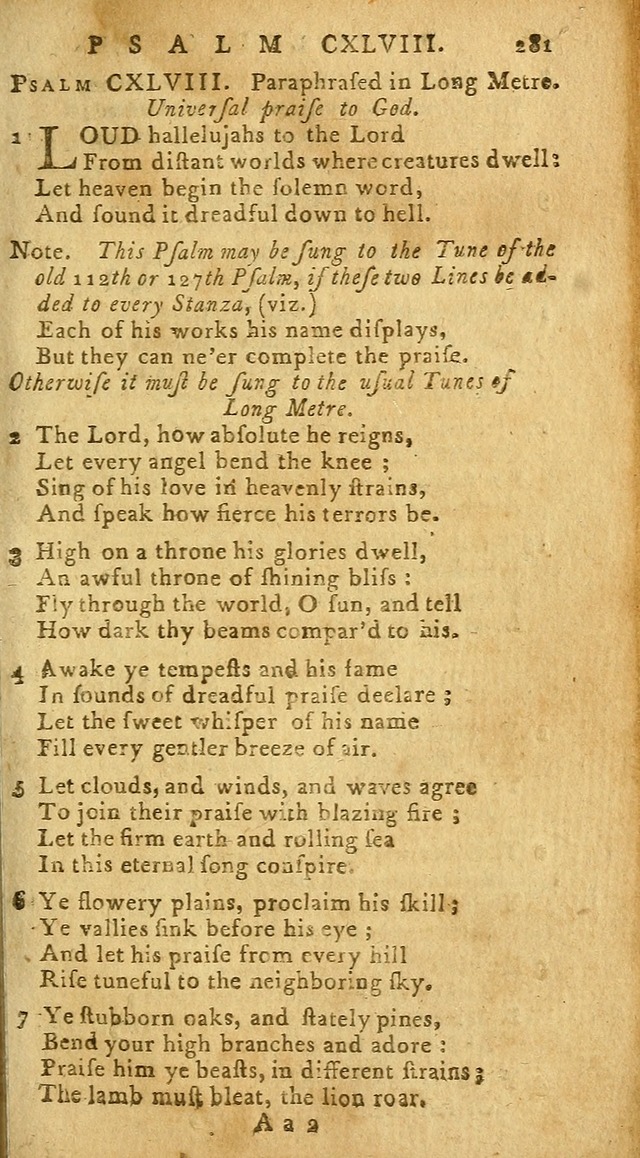 PSALM CXLVIII. 281
PSALM CXLVIII. Paraphraſed in Long Metre.
Univerſal praiſe to God.
1 LOUD hallelujahs to the Lord
From diſtant worlds where creatures dwell:
Let heaven begin the ſolemn word,
And ſound it dreadful down to hell.
Note. This Pſalm may be ſung to the Tune of the
old 112th or 127th Pſalm, if theſe two Lines be ad-
ded to every Stanza, (viz.)
Each of his works his name diſplays,
But they can ne'er complete the praiſe.
Otherwiſe it muſt be ſung to the uſual Tunes of
Long Metre.
2 The Lord, how abſolute he reigns,
Let every angel bend the knee ;
Sing of his love in heavenly ſtrains,
And ſpeak how fierce his terrors be.
3 High on a throne his glories dwell,
An awful throne of ſhining bliſs :
Fly through the world, O ſun, and tell
How dark thy beams compar'd to his.
4 Awake ye tempeſts and his fame
In ſounds of dreadful praiſe declare ;
Let the ſweet whiſper of his name
Fill every gentler breeze of air.
5 Let clouds, and winds, and waves agree
To join their praiſe with blazing fire ;
Let the firm earth and rolling ſea
In this eternal ſong conſpire.
6 Ye flowery plains, proclaim his ſkill ;
Ye vallies ſink before his eye ;
And let his praiſe from every hill
Riſe tuneful to the neighboring ſky.
7 Ye ſtubborn oaks, and ſtately pines,
Bend your high branches and adore :
Praiſe him ye beaſts, in different ſtrains ;
The lamb muſt bleat, the lion roar.
A a 2